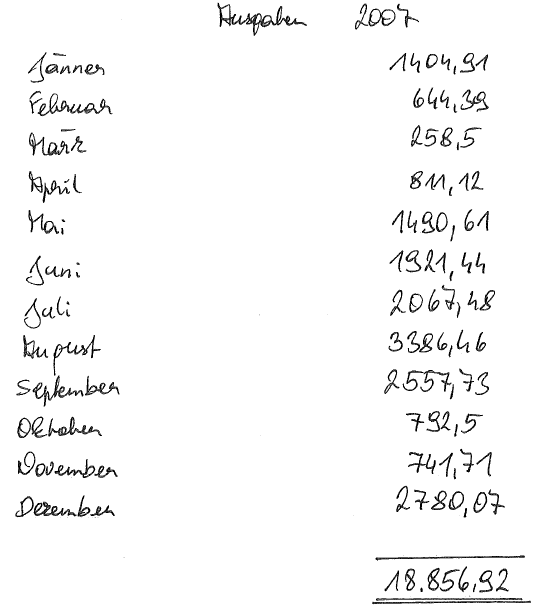 Ausgaben 2007
Jänner 1404,91
Februar 644,39
März 258,5
April 811,12
Mai 1490,61
Juni 1921,44
Juli 2067,48
August 3386,46
September 2557,73
Oktober 792,5
November 741,71
Dezember 2780,07
18.856,92